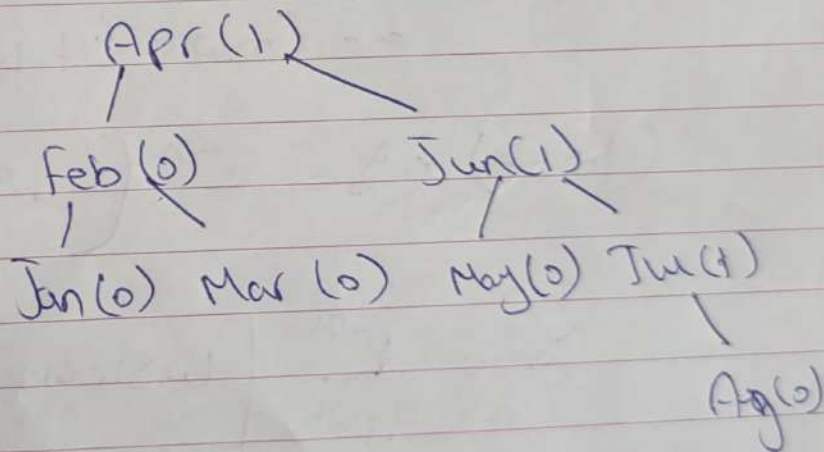 Apr(1)
Feb(0) Jun(1)
Jan(0) Mar(0) May(0) Jul(1)
Aug(0)